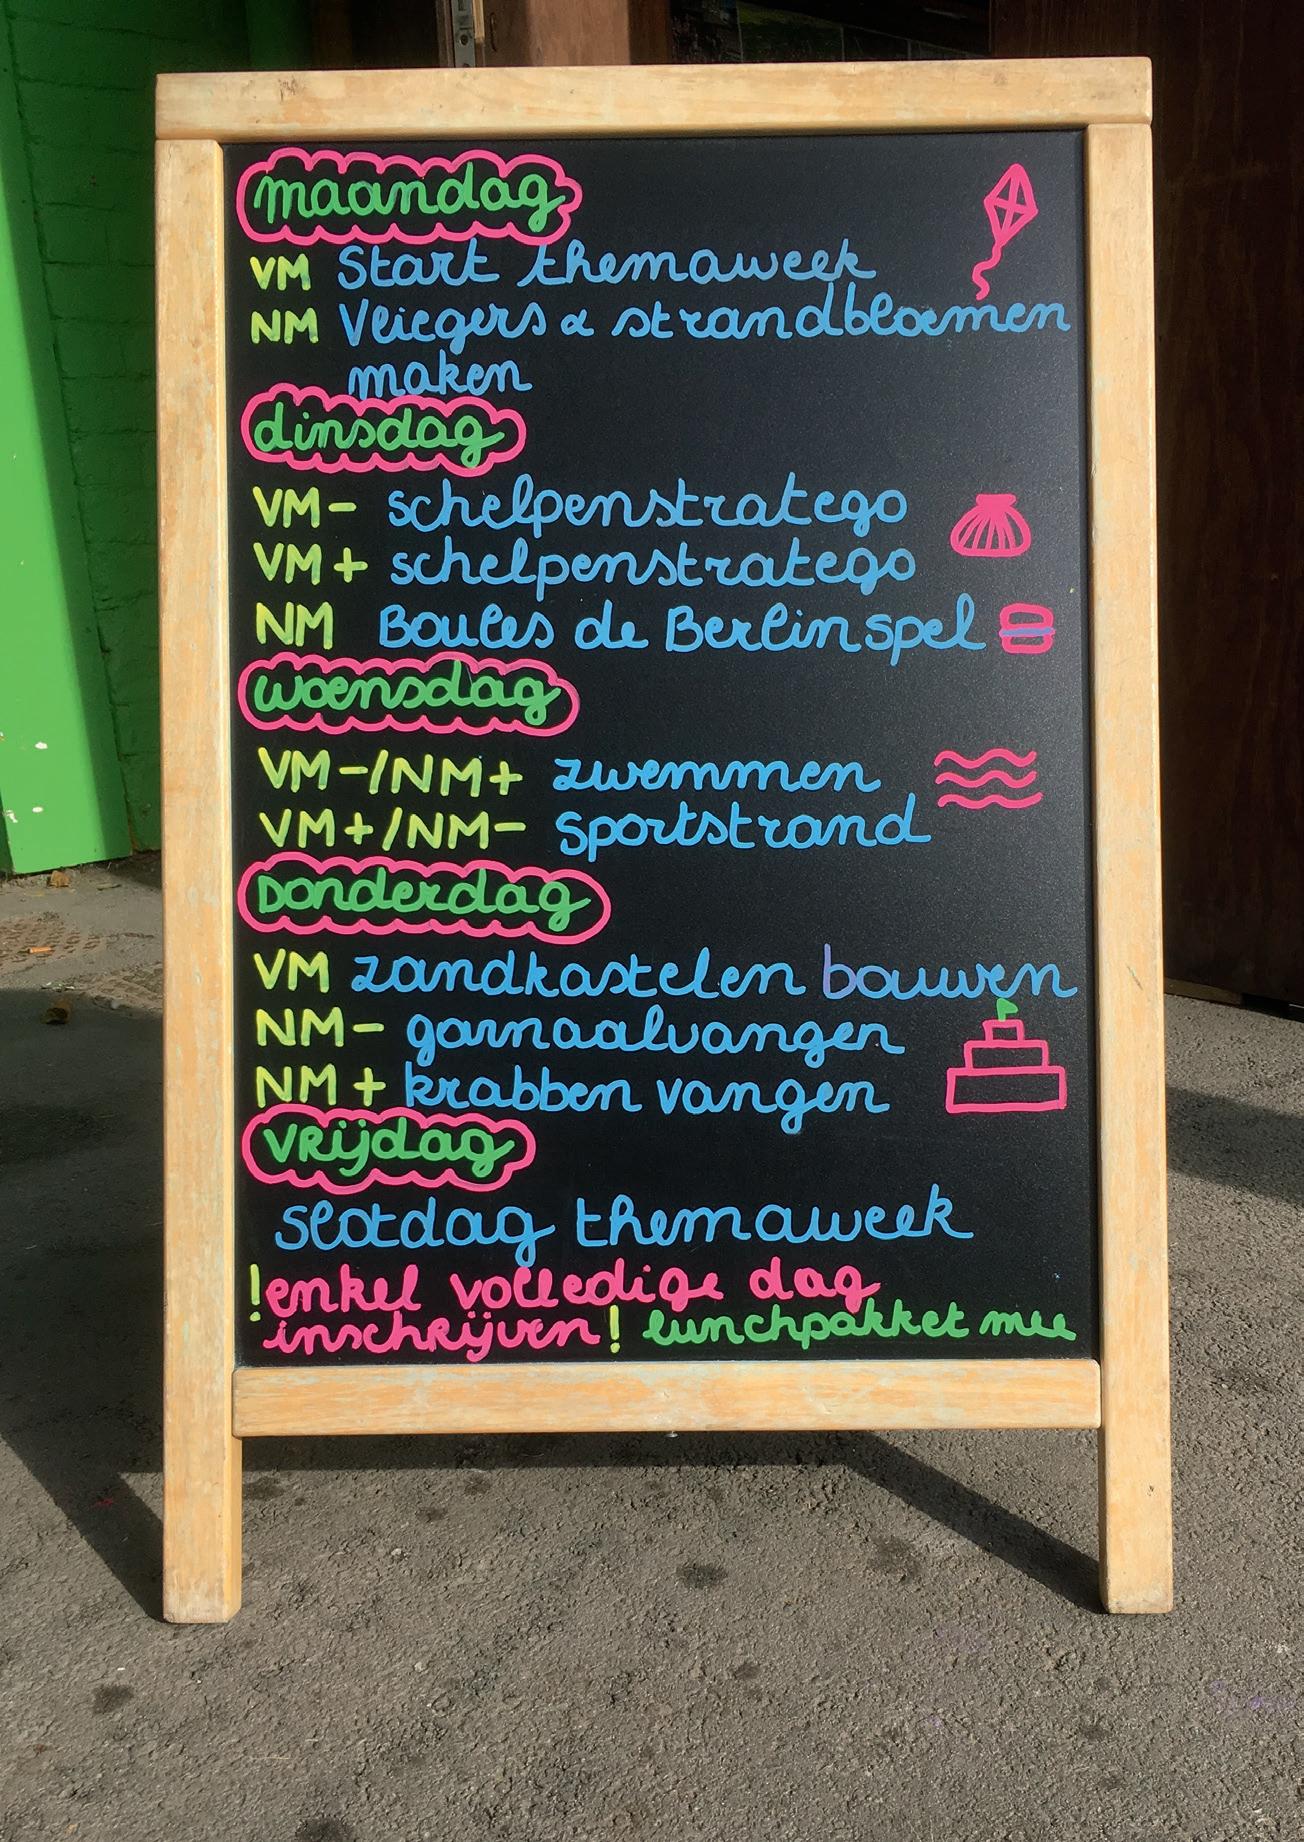 maandag
VM Start themaweek
NM Vliegers & strandbloemen
maken
dinsdag
VM- schelpenstratego
VM+ schelpenstratego
NM Boules de Berlin spel
woensdag
VM-/NM+ zwemmen
VM+/NM- sportstrand
Donderdag
VM zandkastelen bouwen
NM- garnaalvangen
NM+ krabben vangen
vrijdag
slotdag themaweek
!enkel volledige dag
inschrijven! lunchpakket mee